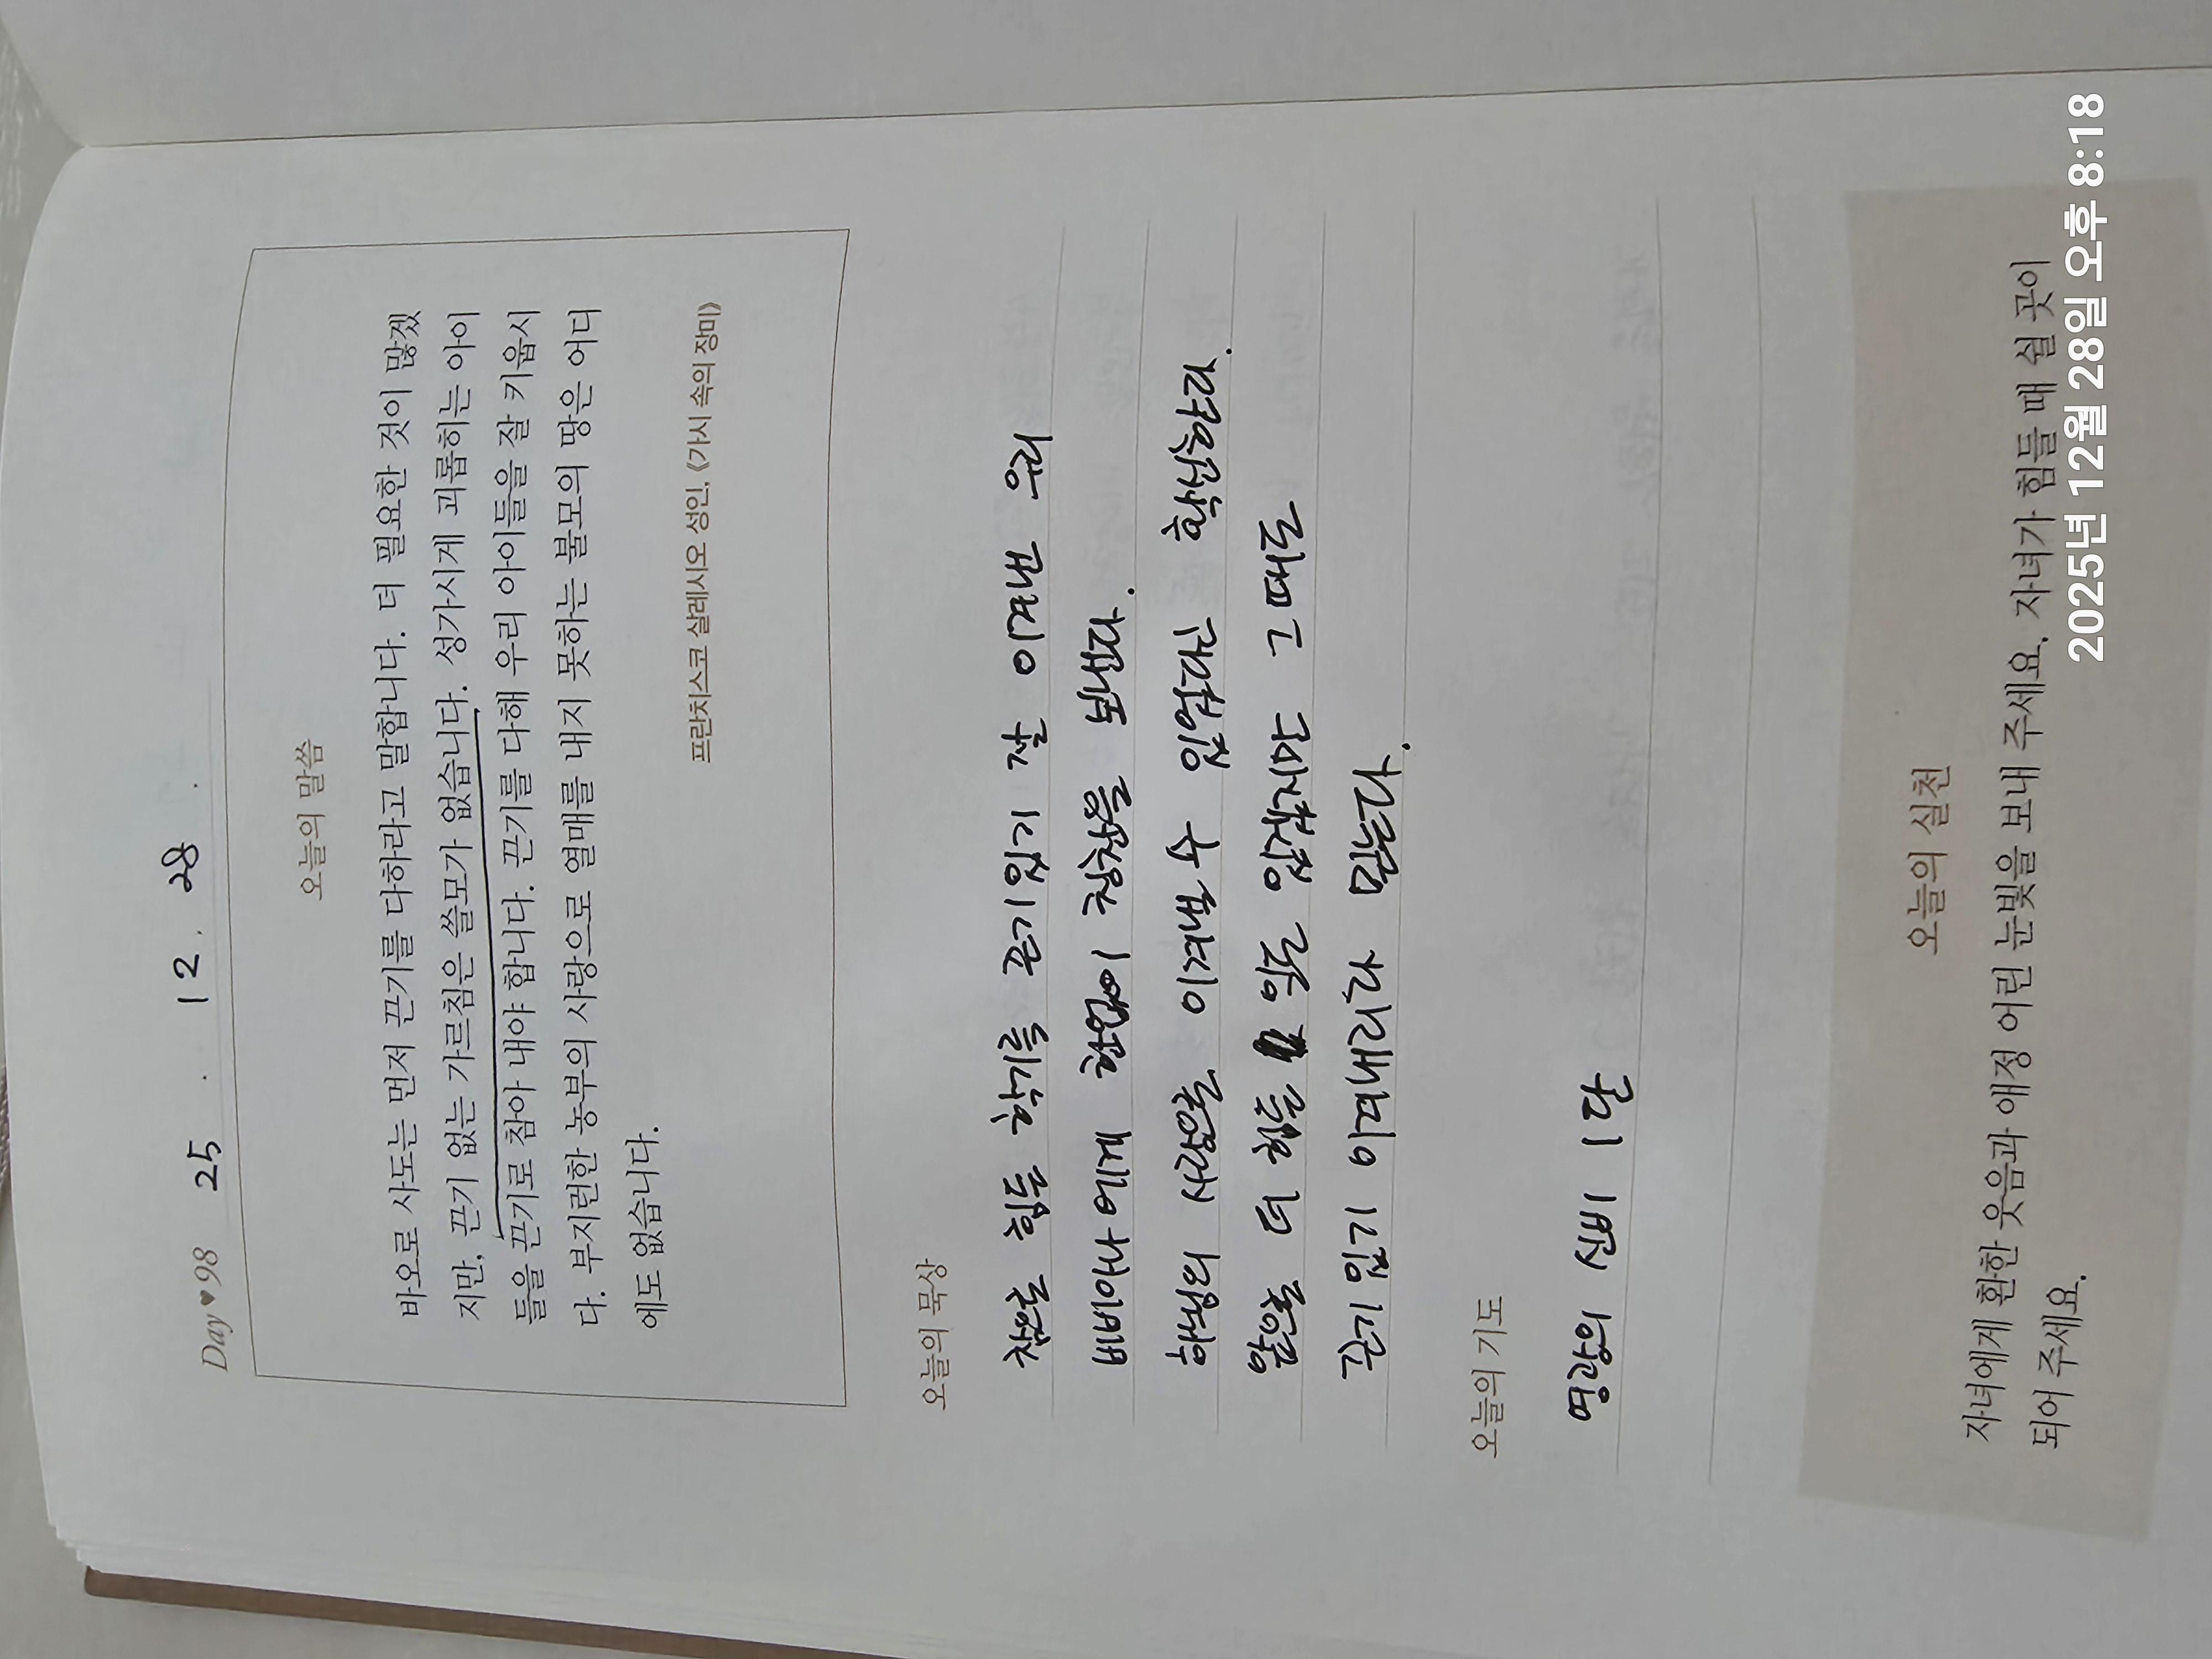 Day♥98 25. 12. 28.
오늘의 말씀
바오로 사도는 먼저 끈기를 다하라고 말합니다. 더 필요한 것이 많겠
지만, 끈기 없는 가르침은 쓸모가 없습니다. 성가시게 괴롭히는 아이
들을 끈기로 참아 내야 합니다. 끈기를 다해 우리 아이들을 잘 키웁시
다. 부지런한 농부의 사랑으로 열매를 내지 못하는 불모의 땅은 어디
에도 없습니다.
프란치스코 살레시오 성인, 《가시 속의 장미》
오늘의 묵상
참으로 힘든 학기를 끈기있게 잘 이겨낸 우리
비비아나에게 한없이 칭찬을 보낸다.
하느님의 사랑으로 이겨낼 수 있었다고 확신한다.
앞으로 더 힘든 일 들이 생길지라도 그 때로
끈기있게 이겨내리라 믿는다.
오늘의 기도
영광의 신비 1단
오늘의 실천
자녀에게 환한 웃음과 애정 어린 눈빛을 보내 주세요. 자녀가 힘들 때 쉴 곳이
되어 주세요.
2025년 12월 28일 오후 8:18